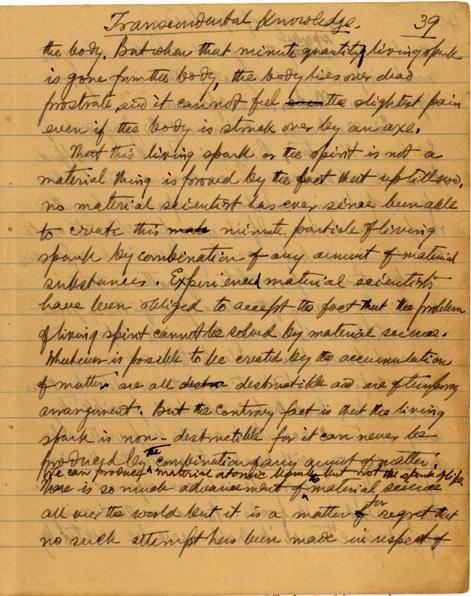 Transcendental Knowledge. 39
the body. But when that minute quantity living spark
is gone from the body, the body lies over dead
prostrate and it cannot feel even the slightest pain
even if the body is struck over by an axe.
That this living spark or the spirit is not a
material thing is proved by the fact that up till now,
no material scientist has ever since been able
to create this minute particle of living
spark by combination of any amount of material
substances. Experienced material scientists
have been obliged to accept the fact that the problem
of living spirit cannot be solved by material science.
Whatever is possible to be created by the accumulation
of matter are all destructible and are of temporary
arrangement. But the contrary fact is that the living
spark is non-destructible for it can never be
produced by the combination of any amount of matter.
We can produce material atomic bomb but not the spark of life.
There is so much advancement of material science
all over the world but it is a matter of for regret that
no such attempt has been made in respect of